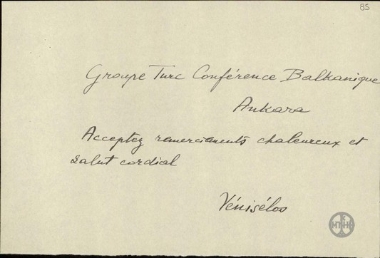 85
Groupe Turc Conférence Balkanique
Ankara
Acceptez remerciements chaleureux et
salut cordial
Vénisélos